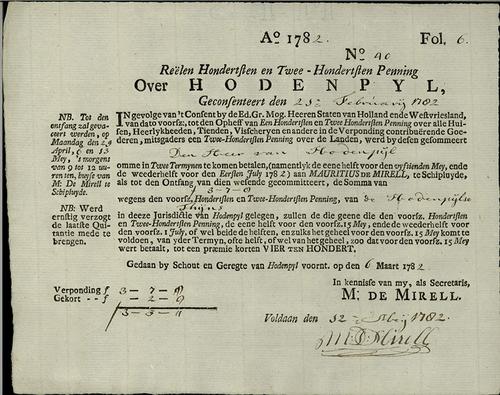 Aº 1782.
Fol. 6.
Nº 40
Reëlen Hondertsten en Twee-Hondertsten Penning
Over HODENPYL,
Geconsenteert den 25: Februarij 1782
NB. Tot den
ontfang zal gevaceert
werden, op
Maandag den 29
April, 6 en 13
Mey, 's morgens
van 9 tot 12 uuren
ten, huyse van
M: De Mirell te
Schipluyde.
NB: Werd
ernstig verzogt
de laatste Quitantie
mede te
brengen.
INgevolge van 't Consent by de Ed. Gr. Mog. Heeren Staten van Holland ende Westvriesland,
van dato voorsz:, tot den Ophef van Een Hondertsten en Twee Hondertsten Penning over alle Huisen,
Heerlykheeden, Tienden, Visscheryen en andere in de Verponding contribuërende Goederen,
mitsgaders een Twee-Hondertsten Penning over de Landen, werd by desen gesommeert
Den Heer van Hodenpijl
omme in Twee Termynen te komen betalen, (namentlyk de eene helft voor den vyftienden Mey, ende
de weederhelft voor den Eersten July 1782) aan MAURITIUS DE MIRELL, te Schipluyde,
als tot den Ontfang van dien wesende gecommitteert, de Somma van
3-7-0
wegens den voorsz, Hondertsten en Twee-Hondertsten Penning, van de Hodenpijlse
Thijns
in deeze Jurisdictie van Hodenpyl gelegen, zullen de die geene die den voorsz. Hondertsten
en Twee-Hondertsten Penning, de eene helft voor den voorsz. 15 Mey, ende de wederhelft voor
den voorsz. 1 July, of wel beide de helften, en zulks het geheel voor den voorsz. 15 Mey komt te
voldoen, van yder Termyn, ofte helft, of wel van het geheel, zoo dat voor den voorsz. 15 Mey
wert betaalt, tot een præmie korten VIER TEN HONDERT.
Gedaan by Schout en Geregte van Hodenpyl voornt. op den 6 Maart 1782
In kennisse van my, als Secretaris,
M: DE MIRELL.
Verponding f 3-7-0
Gekort - - f -2-9
Voldaan den 1782.
M: D: Mirell